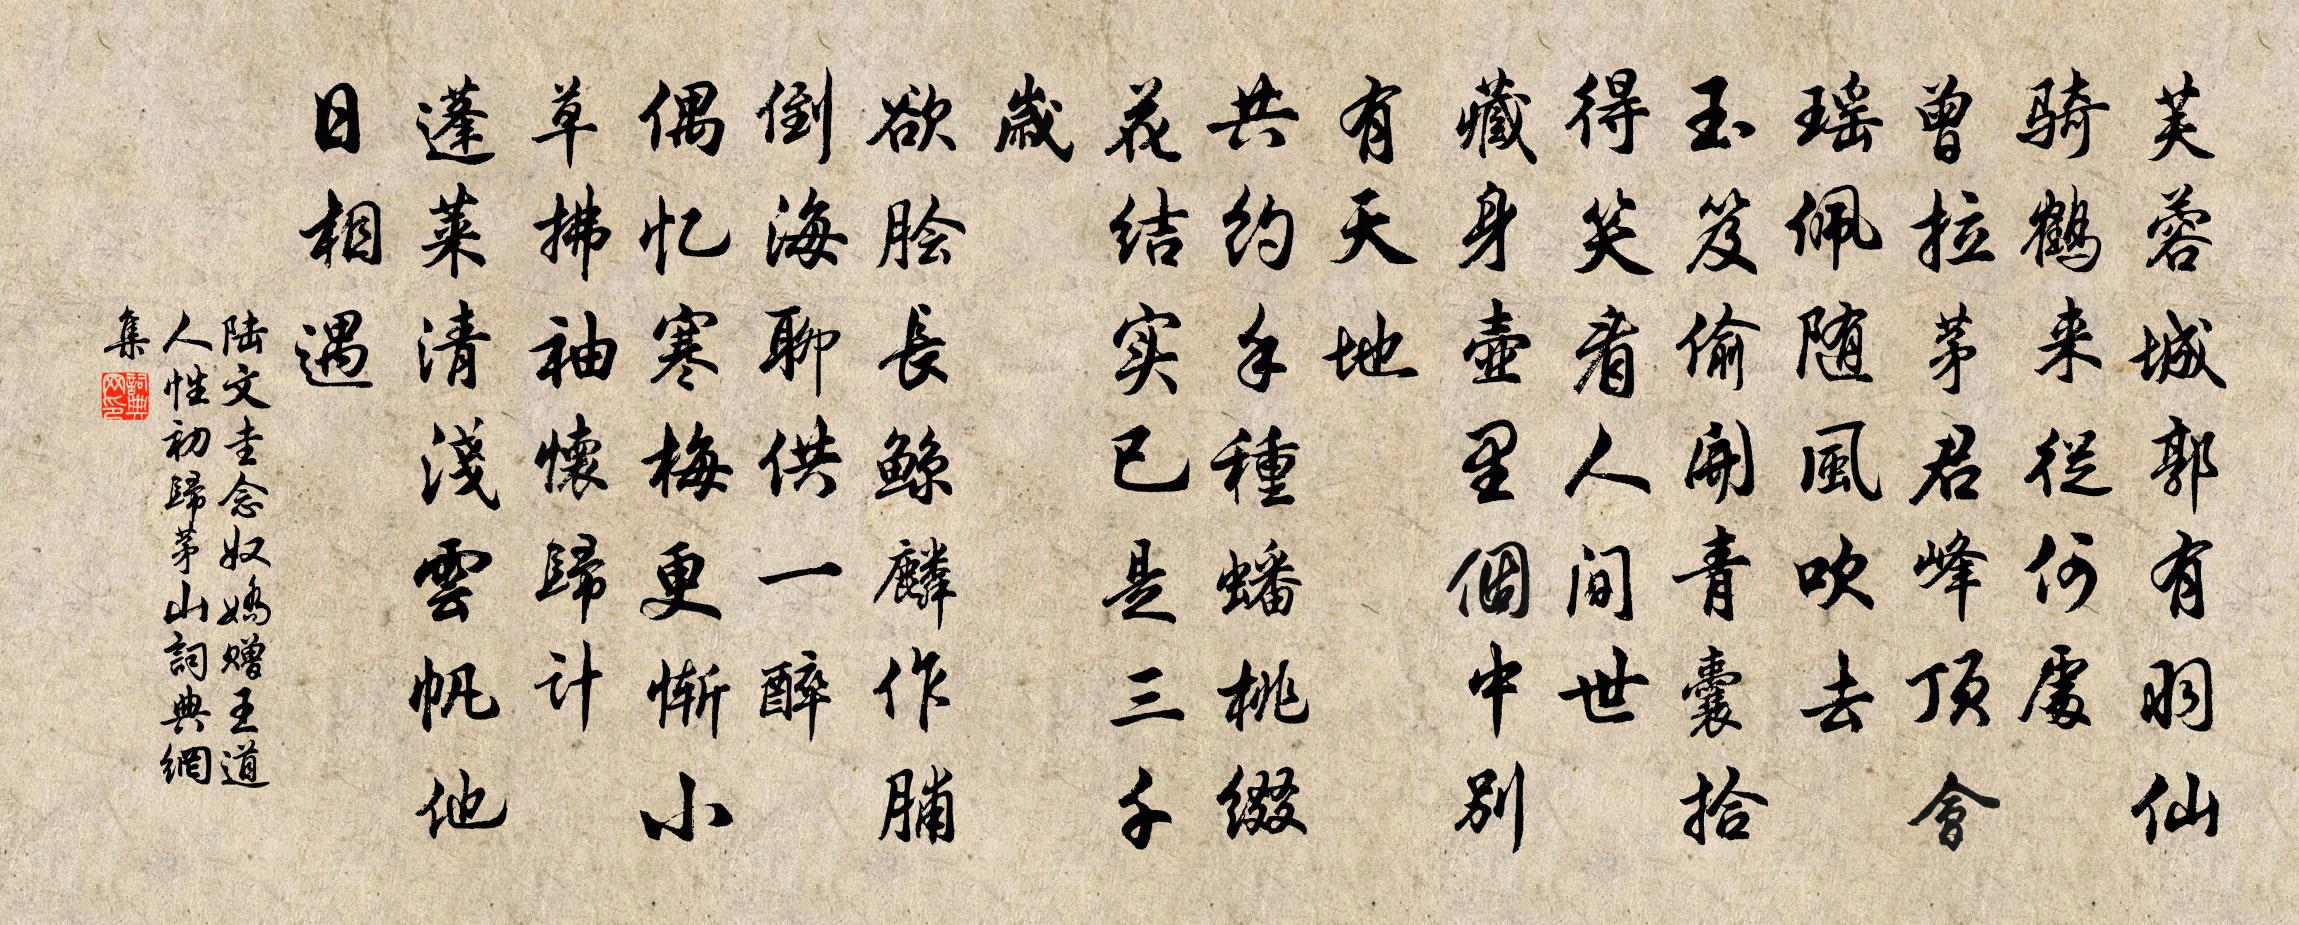 芙蓉城郭有羽仙
骑鹤来從何處
曾拉茅君峰顶會
瑶佩随風吹去
玉笈偷開青囊拾
得笑看人间世
藏身壶里個中别
有天地
共约手種蟠桃缀
花结实已是三千
歲
欲脍長鲸麟作脯
倒海聊供一醉
偶忆寒梅更惭小
草拂袖懷歸计
蓬莱清淺雲帆他
日相遇
陆文圭念奴嬌赠王道
人性初歸茅山詞典網
集
詞典
网印